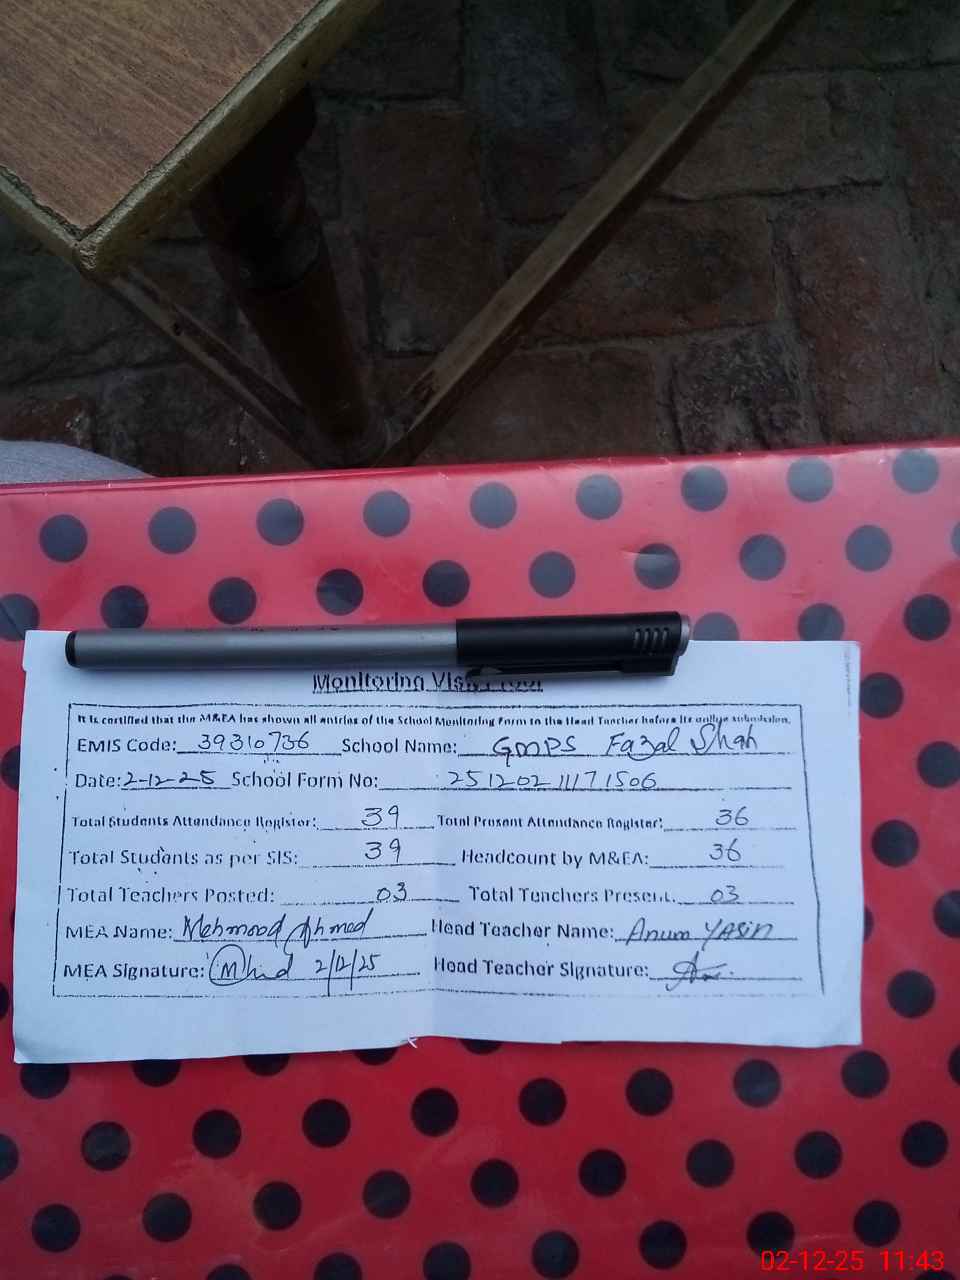 Monitoring Visit Proof
It is certified that the M&EA has shown all entries of the School Monitoring Form to the Head Teacher before its online submission.
EMIS Code: 39310736 School Name: GMPS Fazal Shah
Date: 2-12-25 School Form No: 25120211171506
Total Students Attendance Register: 39 Total Present Attendance Register: 36
Total Students as per SIS: 39 Headcount by M&EA: 36
Total Teachers Posted: 03 Total Teachers Present: 03
MEA Name: Mehmood Ahmed Head Teacher Name: Anum YASin
MEA Signature: 2/12/25 Head Teacher Signature:
02-12-25 11:43